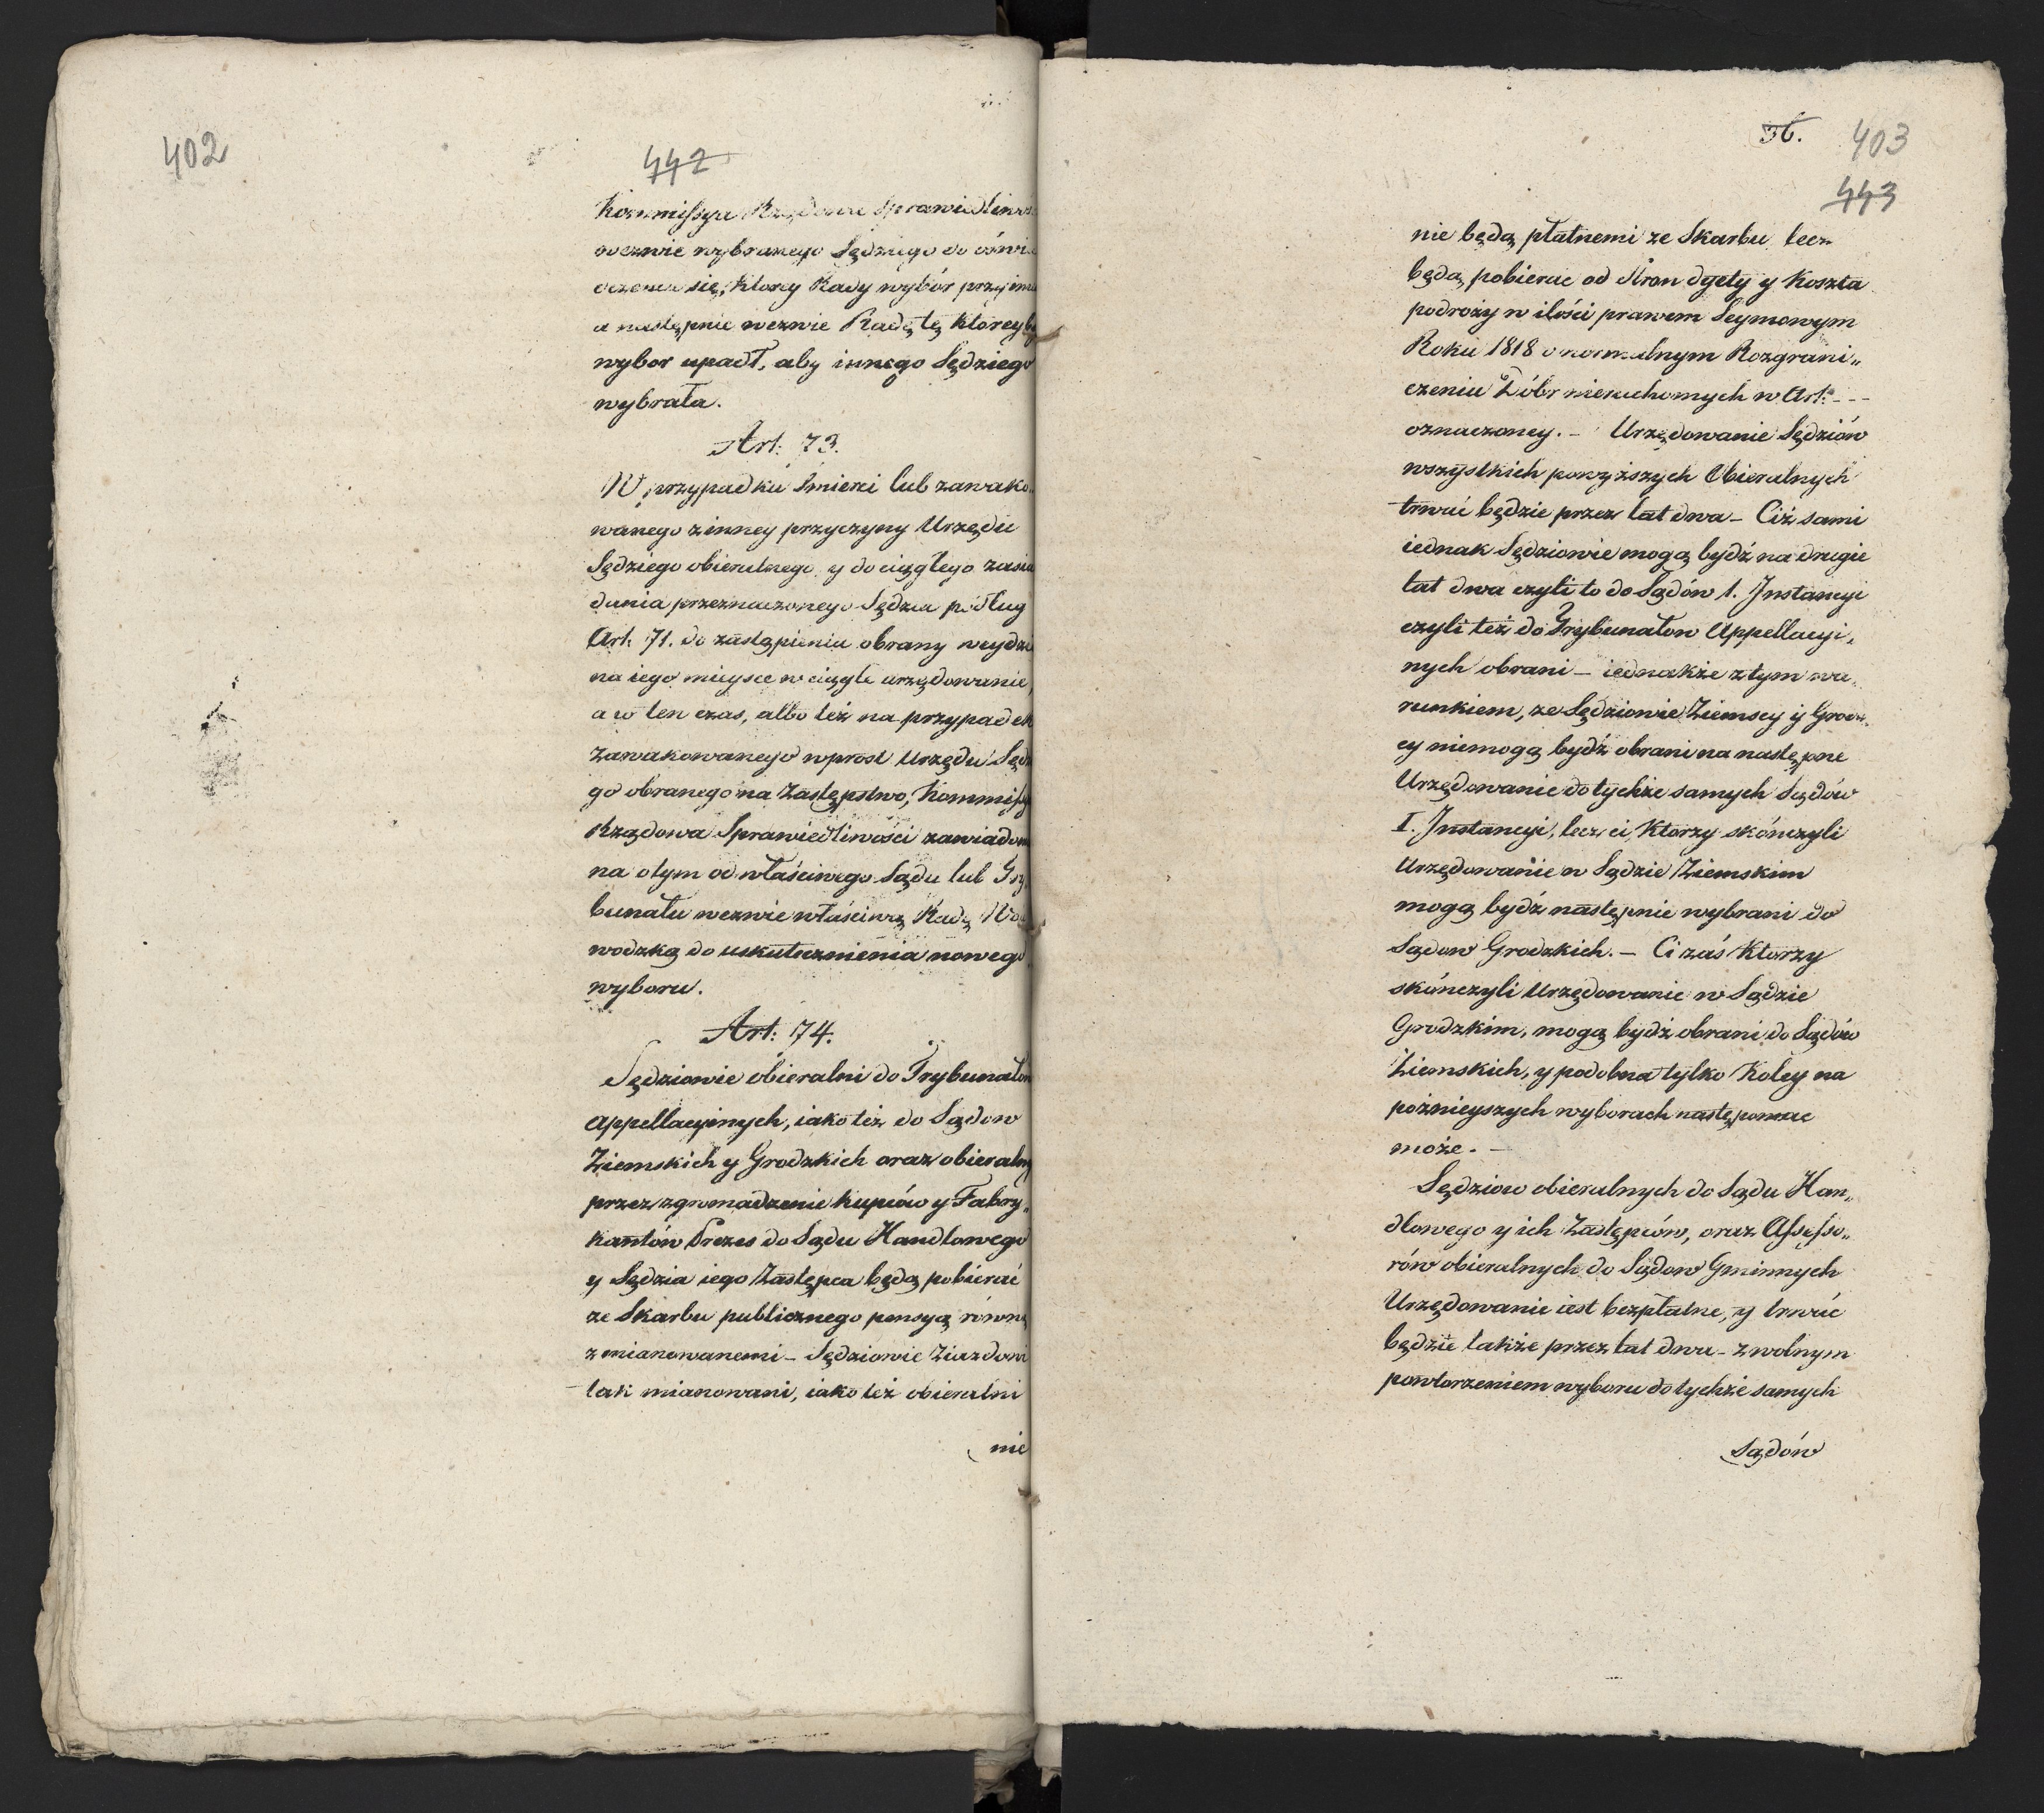 402
442
Kommissya Rządowa Sprawiedliwoś
wezwie wybranego Sędziego do oświa
dczenia się, ktorey Rady wybór przyima
a następnie wezwie Radę tę ktorey by
wybor upadł, aby innego Sędziego
wybrała.
Art: 73.
W przypadku śmierci lub zawako„
wanego zinney przyczyny Urzędu
Sędziego obieralnego y do ciągłego zasia
dania przeznaczonego Sędzia podług
Art: 71. do zastąpienia obrany weydzie
na iego mieysce w ciągłe urzędowanie,
a w ten czas, albo też na przypadek
zawakowanego wprost Urzędu Sędz
go obranego na Zastępstwo, Kommissy
Rządowa Sprawiedliwości zawiadom
na otym od właściwego Sądu lub Try
bunału wezwie właściwą Radę Wo
wodzką do uskutecznienia nowego
wyboru.
Art: 74.
Sędziowie obieralni do Trybunałow
Appellacyinych, iako też do Sądow
Ziemskich y Grodzkich oraz obieralny
przez zgromadzenie Kupców y Fabry„
kantów Prezes do Sądu Handlowego
y Sędzia iego Zastępca będą pobierać
ze Skarbu publicznego pensyą równą
z mianowanemi – Sędziowie Ziazdowi
tak mianowani, iako też obieralni
nie
36.
403
443
nie będą płatnemi ze Skarbu lecz
będą pobierac od Stron dyety y Koszta
podroży w ilości prawem Seymowym
Roku 1818 o normalnym Rozgrani„
czeniu Dóbr nieruchomych w Art: - - -
oznaczoney. – Urzędowanie Sędziów
wszystkich powyższych Obieralnych
trwać będzie przez lat dwa – Ciż sami
iednak Sędziowie mogą bydź na drugie
lat dwa czyli to do Sądów 1. Instancyi
czyli też do Trybunałow Appellacyi„
nych obrani – iednakże z tym wa„
runkiem, ze Sędziowie Ziemscy y Grodz„
cy niemogą bydź obrani na następne
Urzędowanie do tychże samych Sądów
I. Instancyi, lecz ci, Ktorzy skończyli
Urzędowanie w Sądzie Ziemskim
mogą bydź następnie wybrani do
Sądow Grodzkich. – Ci zaś Ktorzy
skończyli Urzędowanie w Sądzie
Grodzkim, mogą bydź obrani do Sądów
Ziemskich, y podobna tylko Koley na
poźnieyszych wyborach następowac
może. –
Sędziow obieralnych do Sądu Han„
dlowego y ich Zastępców, oraz Assesso„
rów obieralnych do Sądow Gminnych
Urzędowanie iest bezpłatne, y trwać
będzie także przez lat dwa – z wolnym
powtorzeniem wyboru do tychże samych
Sądów